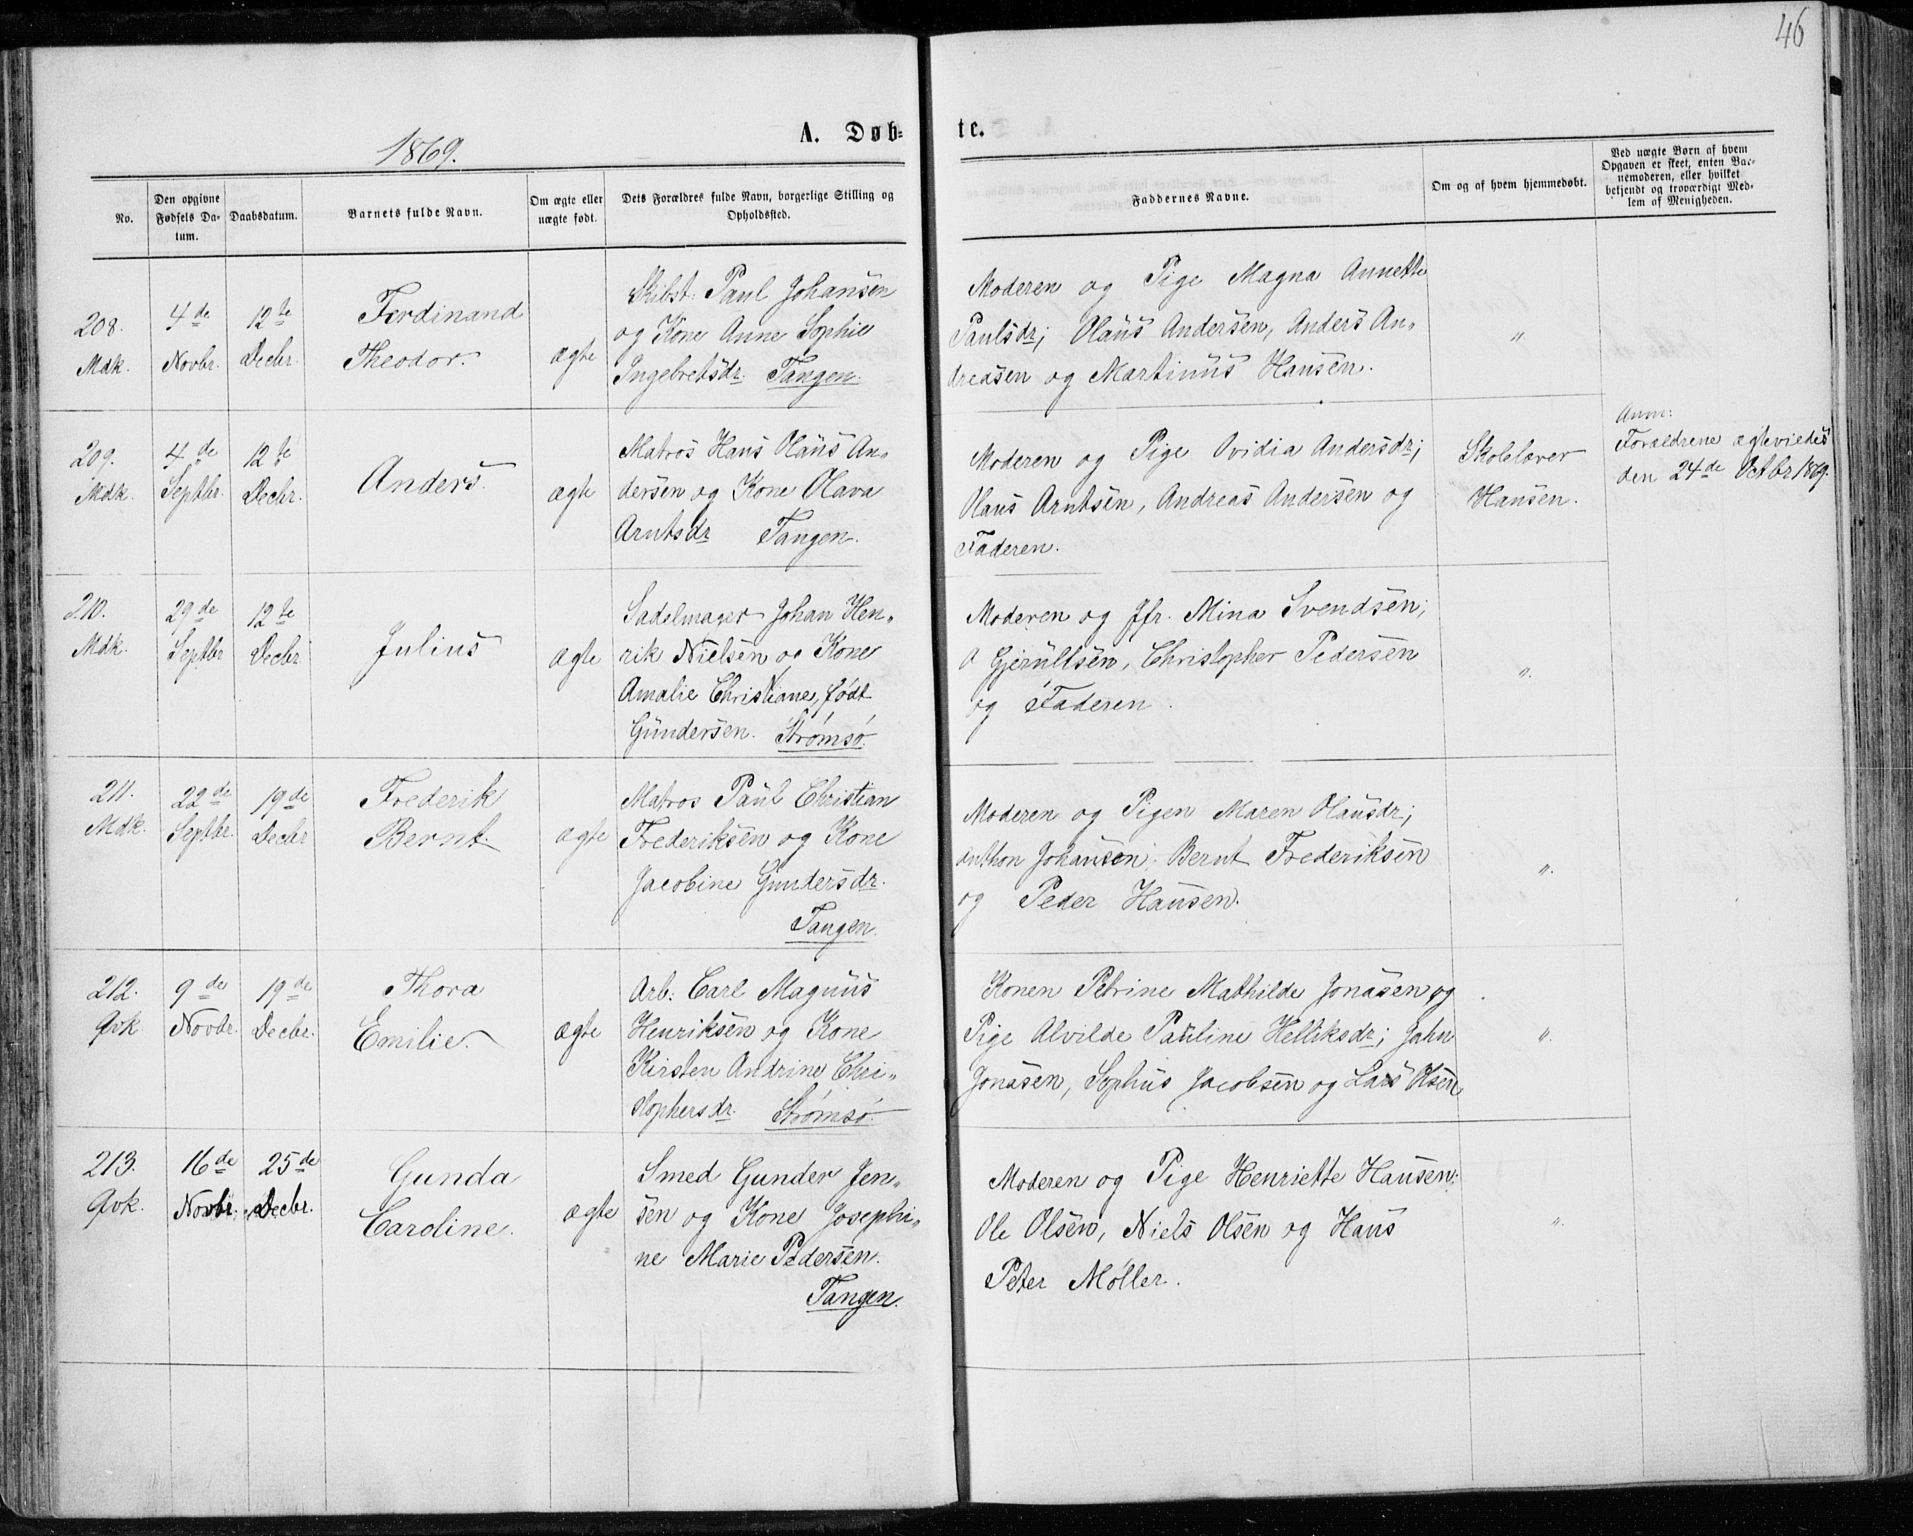 46
1869.
A. Døb-
te.
No.
Den opgivne
Fødsels Da-
tum.
Daabsdatum.
Barnets fulde Navn.
Om ægte eller
uægte født.
Dets Forældres fulde Navn, borgerlige Stilling og
Opholdssted.
Faddernes Navne.
Om og af hvem hjemmedøbt.
Ved uægte Børn af hvem
Opgaven er skeet, enten Bar-
nemoderen, eller hvilket
bekjendt og troværdigt Med-
lem af Menigheden.
208.
Mdk.
4de
Novbr.
12te
Decbr.
Ferdinand
Theodor.
ægte
Skibst: Paul Johansen
og Kone Anne Sophie
Ingebretsdr. Tangen.
Moderen og Pige Magna Annette
Paulsdr; Olaus Andersen, Anders An-
dreasen og Martinus Hansen.
"
209.
Mdk.
4de
Septbr.
12te
Decbr.
Anders.
ægte
Matros Hans Olaus An-
dersen og Kone Olava
Arntsdr Tangen.
Moderen og Pige Ovidia Andersdr;
Olaus Arntsen, Andreas Andersen og
Faderen.
Skolelærer
Hansen.
Anm:
Forældrene ægteviedes
den 24de Octbr 1869.
210.
Mdk.
29de
Septbr
12te
Decbr
Julius
ægte
Sadelmager Johan Hen-
rik Nielsen og Kone
Amalie Christiane, født
Gundersen. Strømsø.
Moderen og Jfr. Mina Svendsen;
O Gjerultsen, Christopher Pedersen
og Faderen.
".
211.
Mdk.
22de
Septbr.
19de
Decbr
Frederik
Bernt.
ægte
Matros Paul Christian
Frederiksen og Kone
Jacobine Gundersdr.
Tangen.
Moderen og Pigen Maren Olausdr;
Anthon Johansen; Bernt Frederiksen
og Peder Hansen.
".
212.
Qvk
9de
Novbr.
19de
Decbr.
Thora
Emilie.
ægte
Arb: Carl Magnus
Henriksen og Kone
Kirsten Andrine Chri-
stophersdr. Strømsø.
Konen Petrine Mathilde Jonasen og
Pige Alvilde Pauline Helliksdr; John
Jonasen, Sophus Jacobsen og Lars Olsen
".
213.
Qvk.
16de
Novbr.
25de
Decbr.
Gunda
Caroline.
ægte
Smed Gunder Jen-
sen og Kone Josephi-
ne Marie Pedersen.
Tangen.
Moderen og Pige Henriette Hansen;
Ole Olsen, Niels Olsen og Hans
Peter Møller.
".